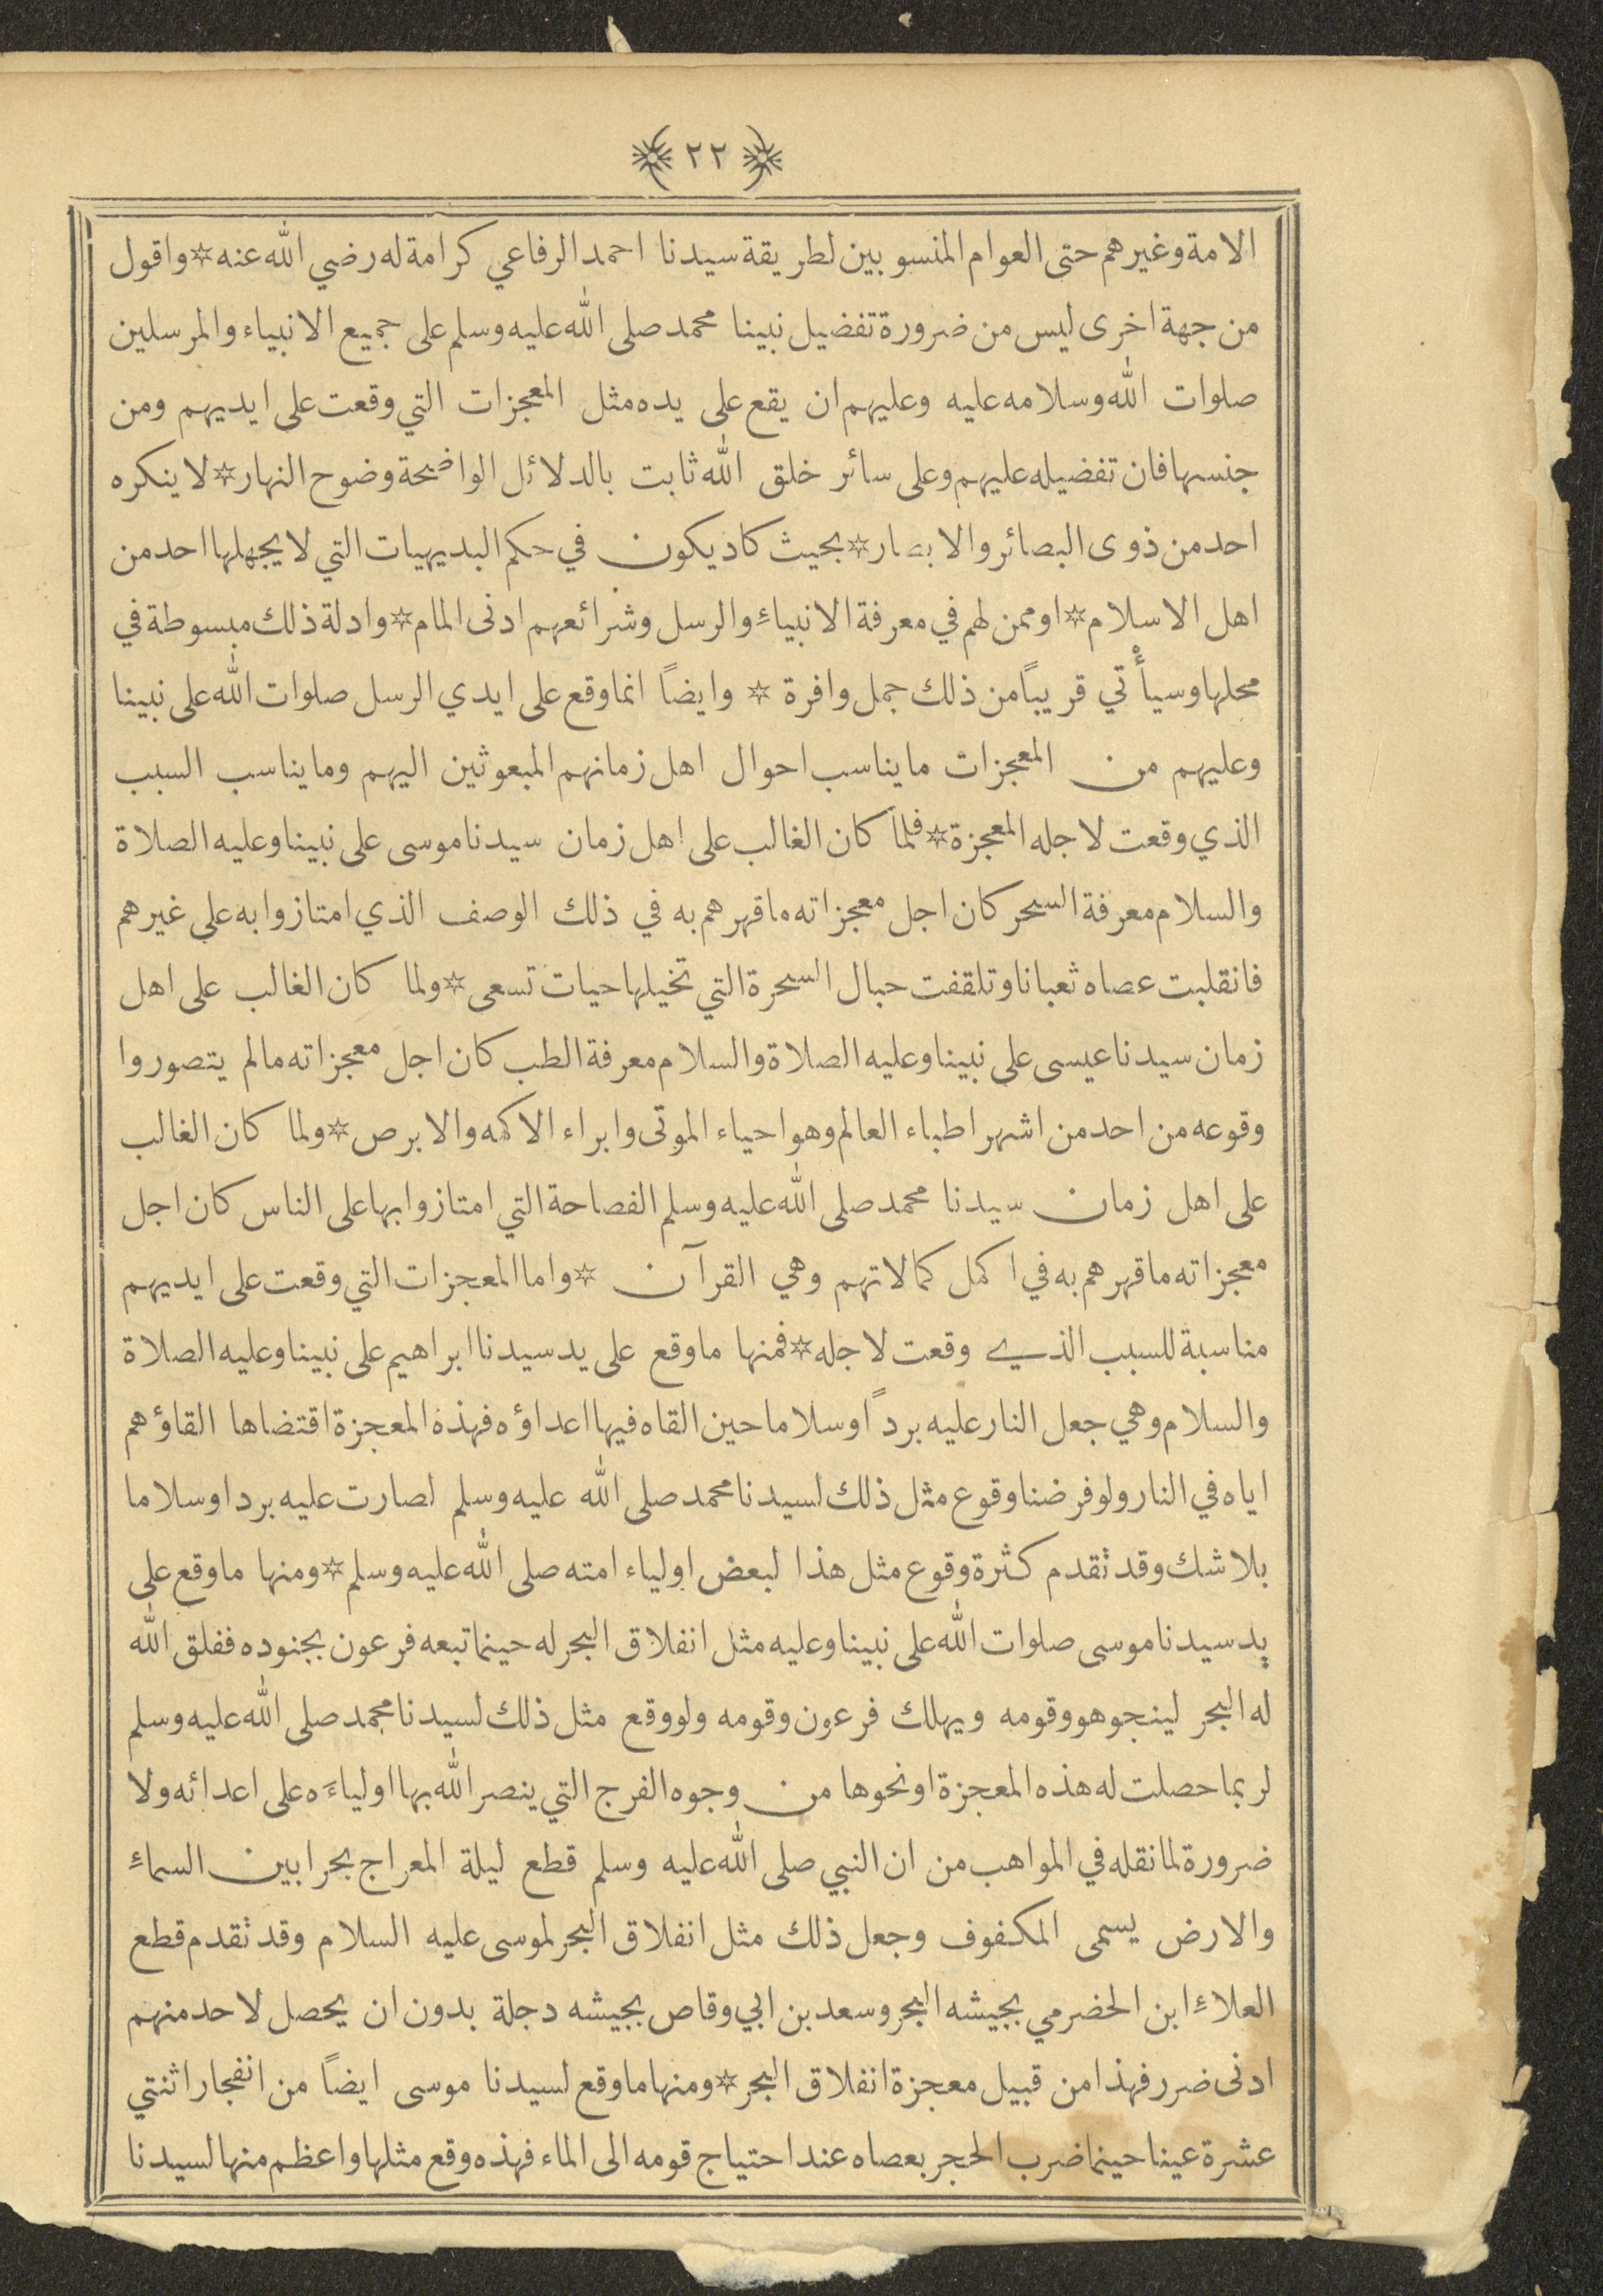 ﴿ ٢٢ ﴾
الامة وغيرهم حتى العوام المنسوبين لطريقة سيدنا احمد الرفاعي كرامة له رضي الله عنه ☆ واقول
من جهة اخرى ليس من ضرورة تفضيل نبينا محمد صلى الله عليه وسلم على جميع الانبياء والمرسلين
صلوات الله وسلامه عليه وعليهم ان يقع على يده مثل المعجزات التي وقعت على ايديهم ومن
جنسها فان تفضيله عليهم وعلى سائر خلق الله ثابت بالدلائل الواضحة وضوح النهار ☆ لا ينكره
احد من ذوى البصائر والابصار ☆ بحيث كاد يكون في حكم البديهيات التي لا يجهلها احد من
اهل الاسلام ☆ او ممن لهم في معرفة الانبياء والرسل وشرائعهم ادنى المام ☆ وادلة ذلك مبسوطة في
محلها وسيأتي قريباً من ذلك جمل وافرة ☆ وايضاً انما وقع على ايدي الرسل صلوات الله على نبينا
وعليهم من المعجزات ما يناسب احوال اهل زمانهم المبعوثين اليهم وما يناسب السبب
الذي وقعت لاجله المعجزة ☆ فلما كان الغالب على اهل زمان سيدنا موسى على نبينا وعليه الصلاة
والسلام معرفة السحر كان اجل معجزاته ما قهرهم به في ذلك الوصف الذي امتازوا به على غيرهم
فانقلبت عصاه ثعبانا وتلقفت حبال السحرة التي تخيلها حيات تسعى ☆ ولما كان الغالب على اهل
زمان سيدنا عيسى على نبينا وعليه الصلاة والسلام معرفة الطب كان اجل معجزاته ما لم يتصوروا
وقوعه من احد من اشهر اطباء العالم وهو احياء الموتى وابراء الاكمه والابرص ☆ ولما كان الغالب
على اهل زمان سيدنا محمد صلى الله عليه وسلم الفصاحة التي امتازوا بها على الناس كان اجل
معجزاته ما قهرهم به في اكمل كمالاتهم وهي القرآن ☆ واما المعجزات التي وقعت على ايديهم
مناسبة للسبب الذي وقعت لاجله ☆ فمنها ما وقع على يد سيدنا ابراهيم على نبينا وعليه الصلاة
والسلام وهي جعل النار عليه برداً وسلاما حين القاه فيها اعداؤه فهذه المعجزة اقتضاها القاؤهم
اياه في النار ولو فرضنا وقوع مثل ذلك لسيدنا محمد صلى الله عليه وسلم لصارت عليه بردا وسلاما
بلا شك وقد تقدم كثرة وقوع مثل هذا لبعض اولياء امته صلى الله عليه وسلم ☆ ومنها ما وقع على
يد سيدنا موسى صلوات الله على نبينا وعليه مثل انفلاق البحر له حينما تبعه فرعون بجنوده ففلق الله
له البحر لينجو هو وقومه ويهلك فرعون وقومه ولو وقع مثل ذلك لسيدنا محمد صلى الله عليه وسلم
لربما حصلت له هذه المعجزة او نحوها من وجوه الفرج التي ينصر الله بها اولياءَه على اعدائه ولا
ضرورة لما نقله في المواهب من ان النبي صلى الله عليه وسلم قطع ليلة المعراج بحرا بين السماء
والارض يسمى المكفوف وجعل ذلك مثل انفلاق البحر لموسى عليه السلام وقد تقدم قطع
العلاء ابن الحضرمي بجيشه البحر وسعد بن ابي وقاص بجيشه دجلة بدون ان يحصل لاحد منهم
ادنى ضرر فهذا من قبيل معجزة انفلاق البحر ☆ ومنها ما وقع لسيدنا موسى ايضاً من انفجار اثنتي
عشرة عينا حينما ضرب الحجر بعصاه عند احتياج قومه الى الماء فهذه وقع مثلها واعظم منها لسيدنا